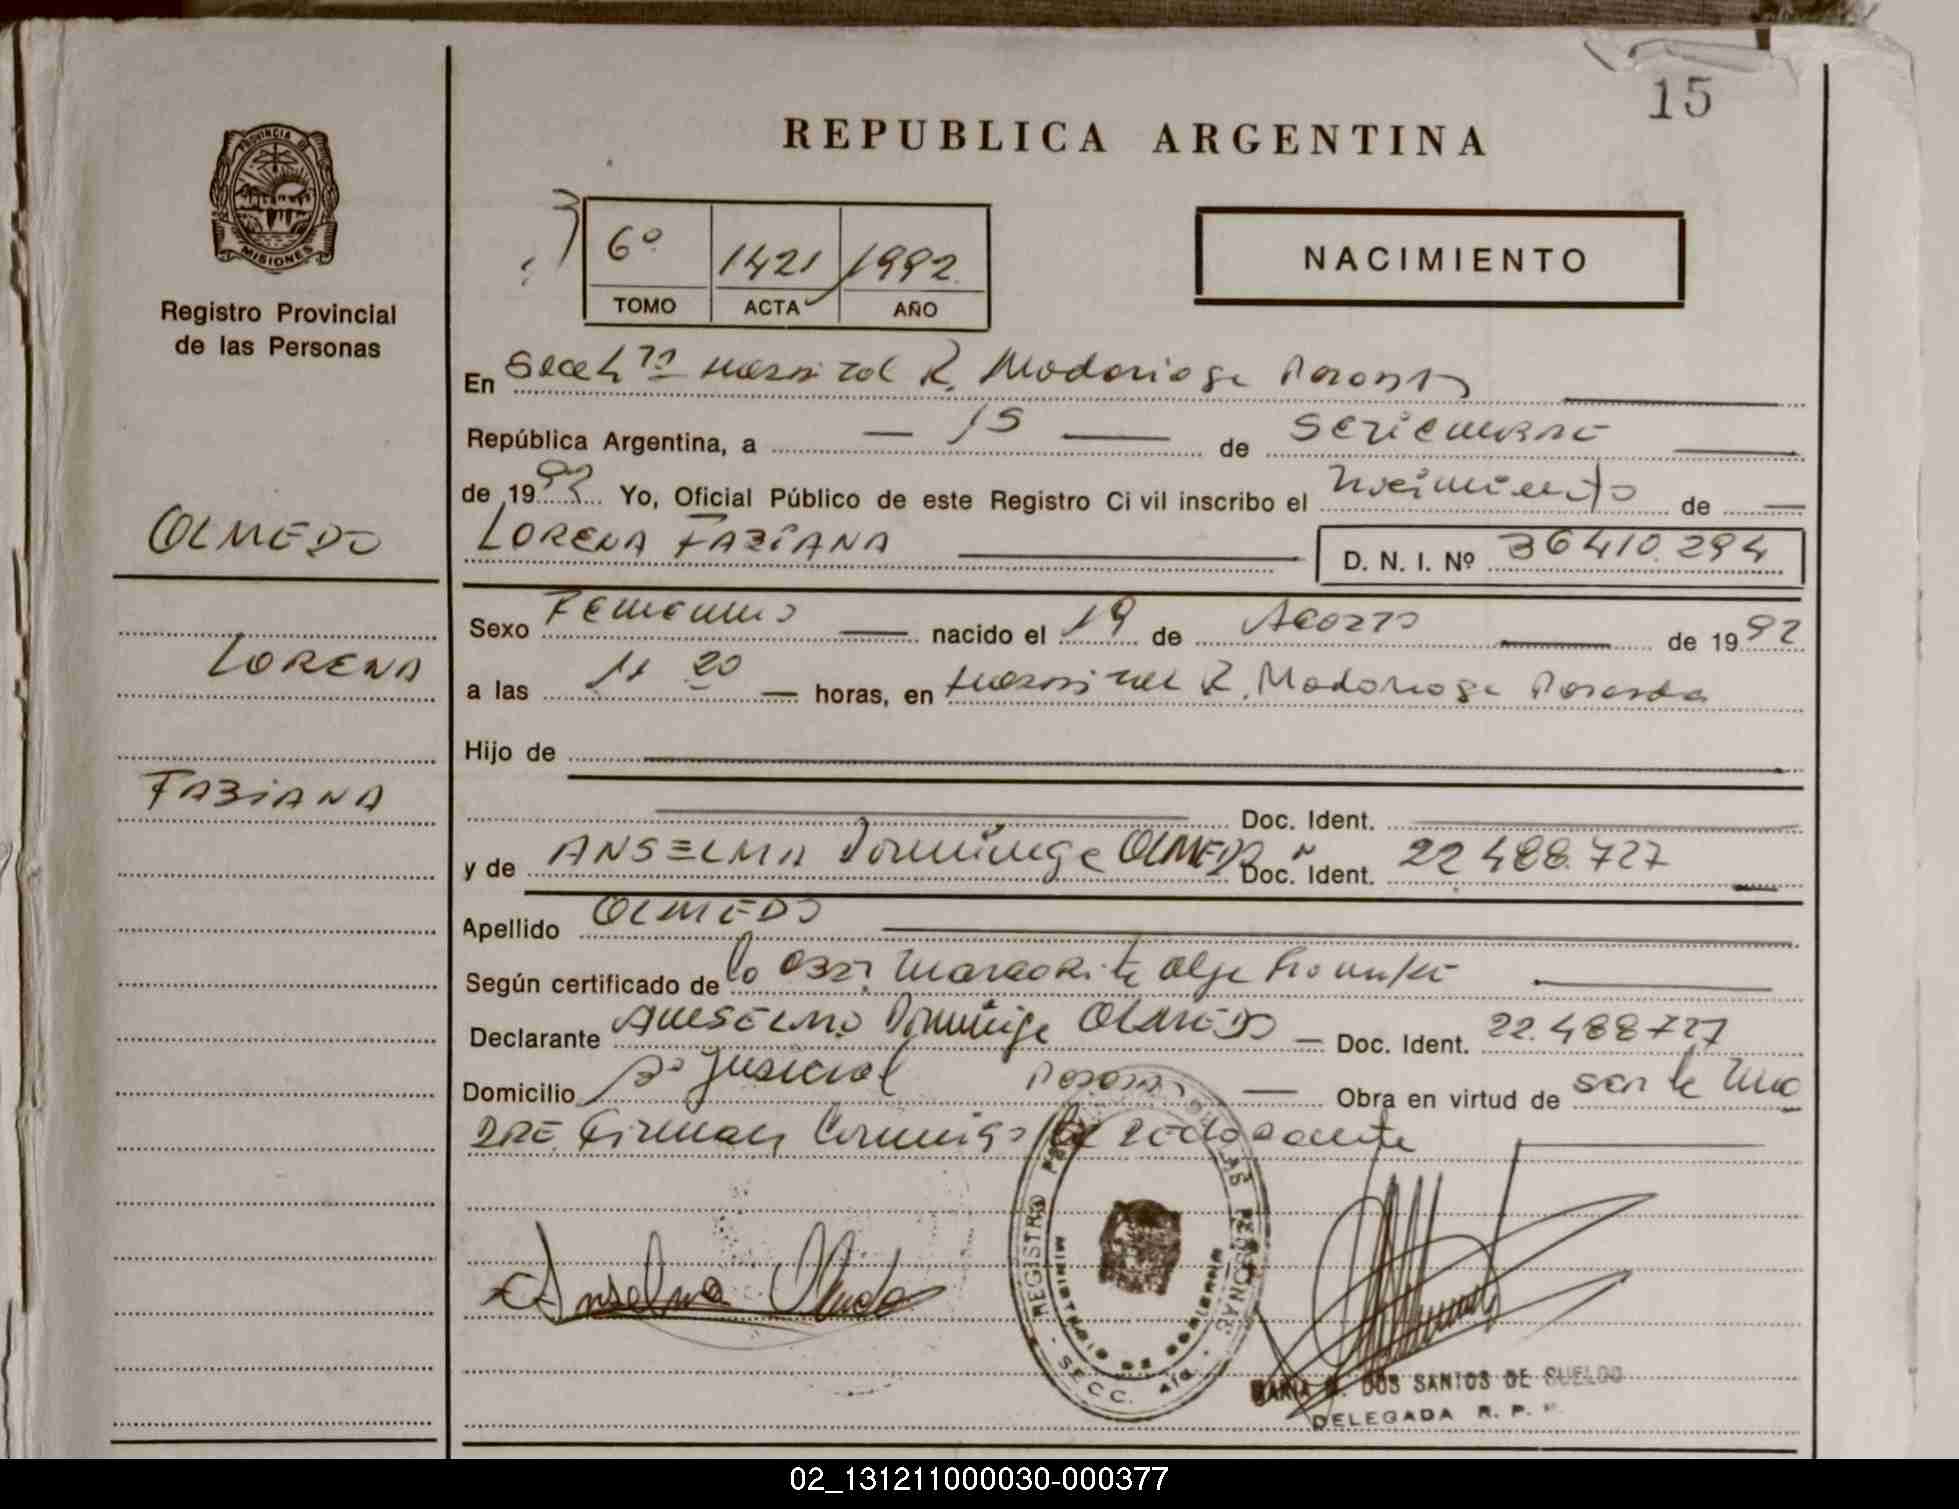 15
REPUBLICA ARGENTINA
PROVINCIA DE
MISIONES
Registro Provincial
de las Personas
6º 1421 1992
TOMO ACTA AÑO
NACIMIENTO
En Secc 4ª Hospital R. Madariaga Posadas
República Argentina, a 15 de Septiembre
de 1992 Yo, Oficial Público de este Registro Civil inscribo el Nacimiento de
OLMEDO
LORENA FABIANA D. N. I. Nº 36410.294
Sexo Femenino nacido el 19 de Agosto de 1992
LORENA
a las 11 20 horas, en Hospital R. Madariaga Posadas
Hijo de
FABIANA
Doc. Ident.
y de ANSELMA Dominga OLMEDO Doc. Ident. 22 488.727
Apellido OLMEDO
Según certificado de la Obst. Margarita Olga
Declarante ANSELMA Dominga OLMEDO Doc. Ident. 22.488727
Domicilio Bº Judicial Posadas Obra en virtud de ser la Ma
dre. Firman Conmigo la declarante
Anselma Olmedo
REGISTRO DE LAS PERSONAS
MINISTERIO DE GOBIERNO
SECC.
MARIA DOS SANTOS DE SUELDO
DELEGADA R. P. P.
02_131211000030-000377